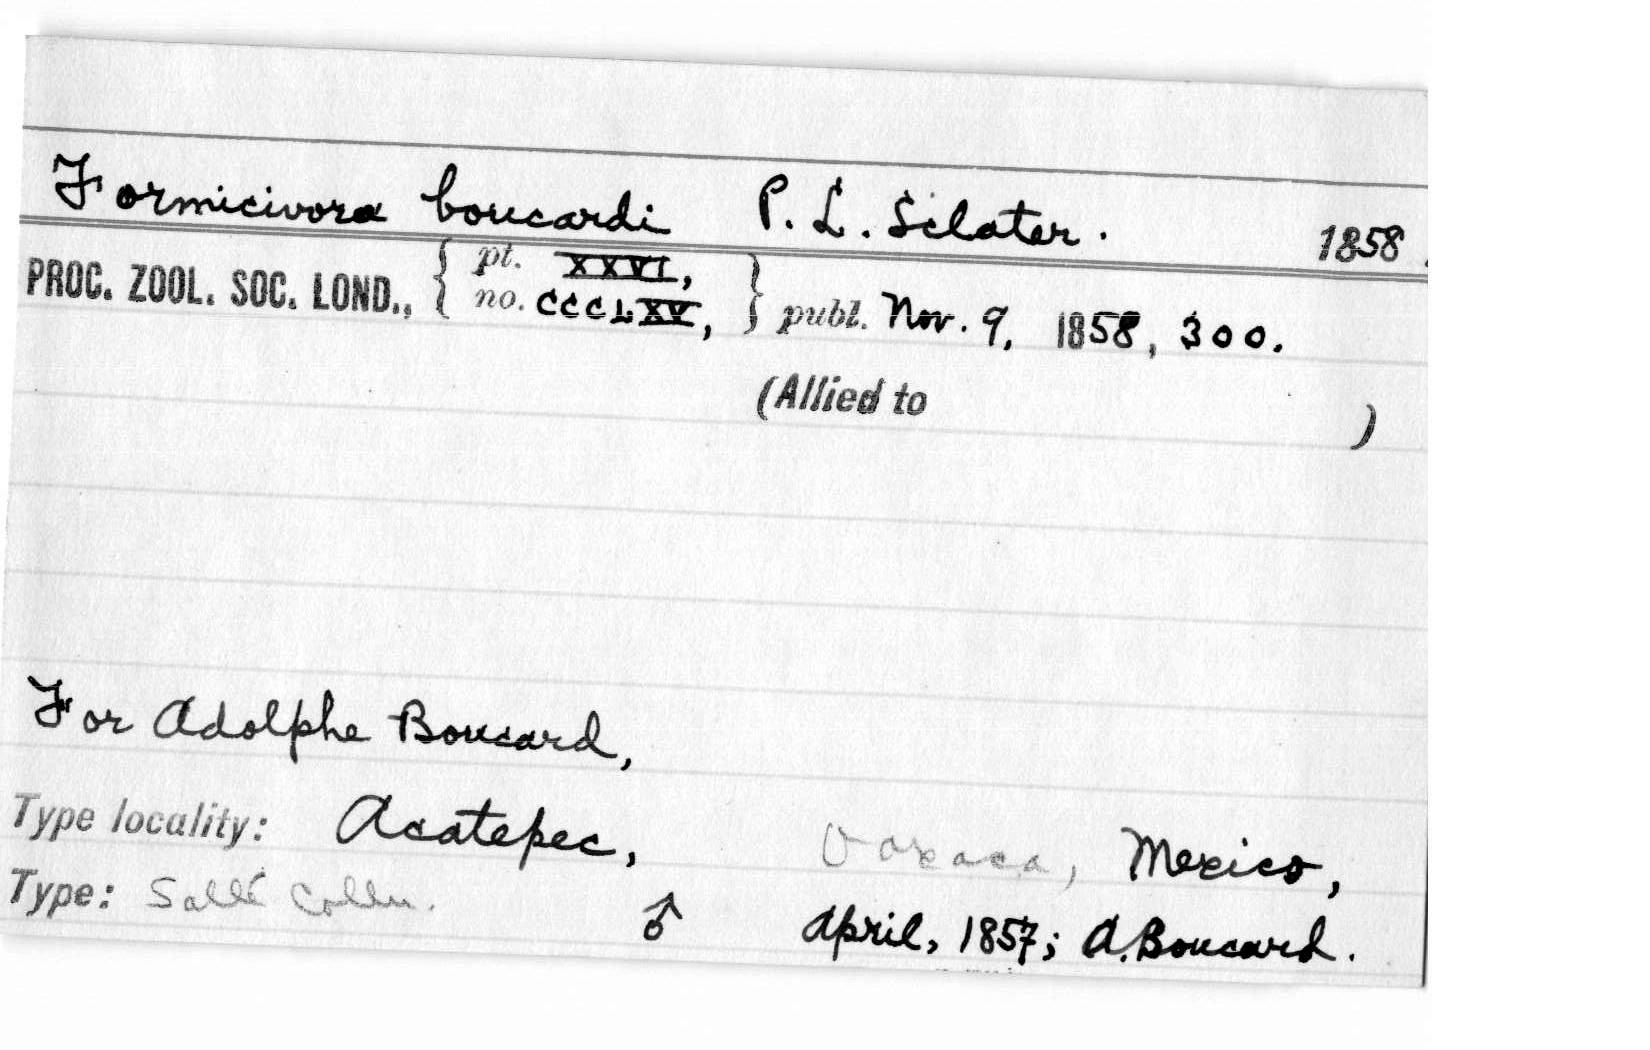 Formicivora boucardi P. L. Sclater. 1858.
PROC. ZOOL. SOC. LOND., { pt. XXVI, no. CCCLXV, } publ. Nov. 9, 1858, 300.
(Allied to )
For Adolphe Boucard,
Type locality: Acatepec, Oaxaca, Mexico,
Type: Sallé Colln. ♂ April, 1857; A. Boucard.